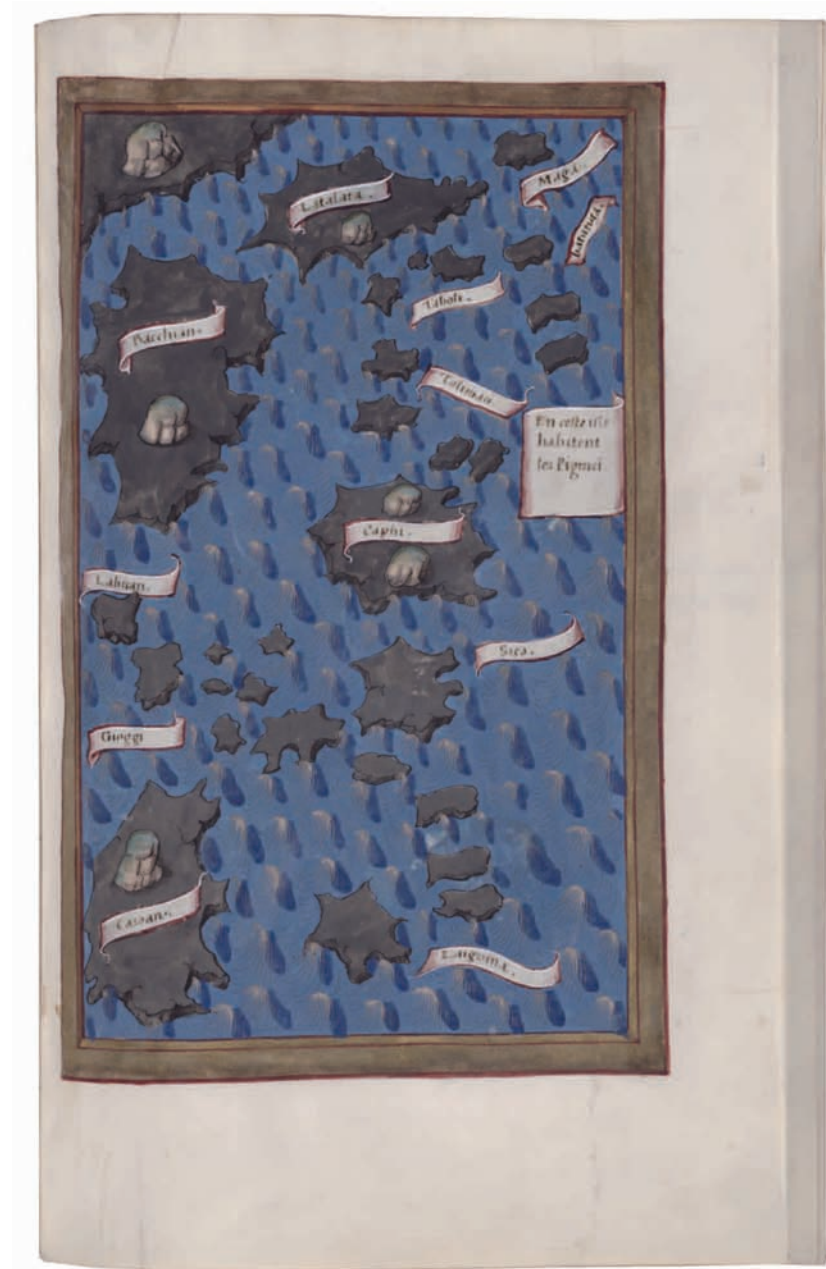 Latalata.
Maga.
Bacchian.
Tabobi.
Toliman.
En ceste isle
habitent
les Pigmei.
Caphi.
Labuan.
Sico.
Gioggi
Cassan.
Laigoma.